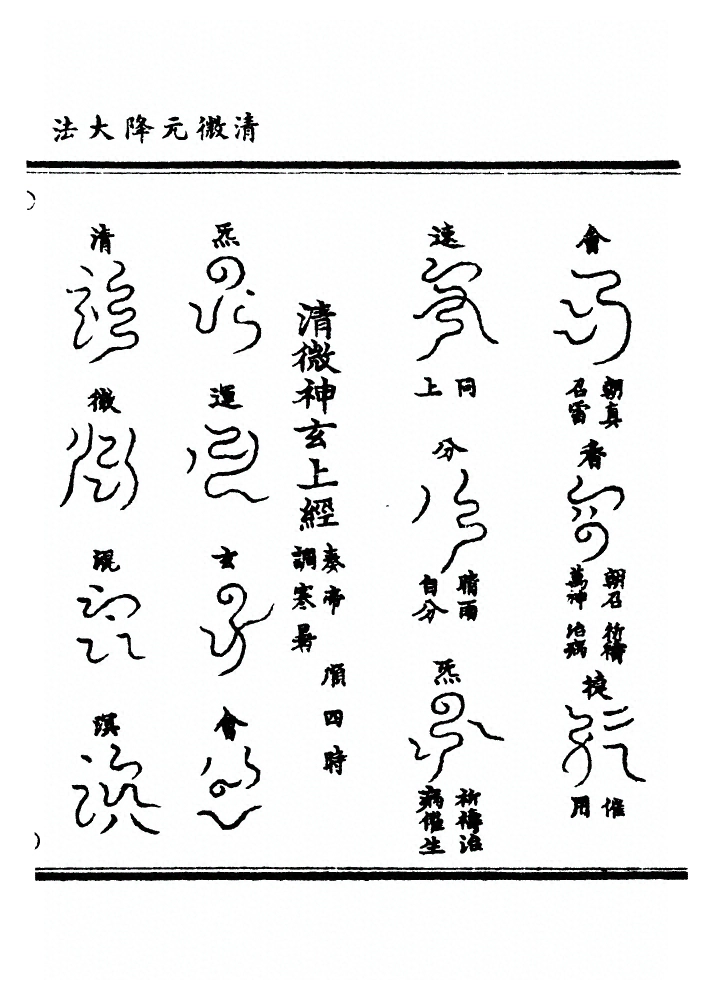 清微元降大法
會
朝真
召雷
者
朝召 祈禱
萬神 治病
捷
催
用
速
同
上
分
晴雨
自分
炁
祈禱治
病催生
清微神玄上經
奏帝 順四時
調寒暑
炁
運
玄
會
清
微
混